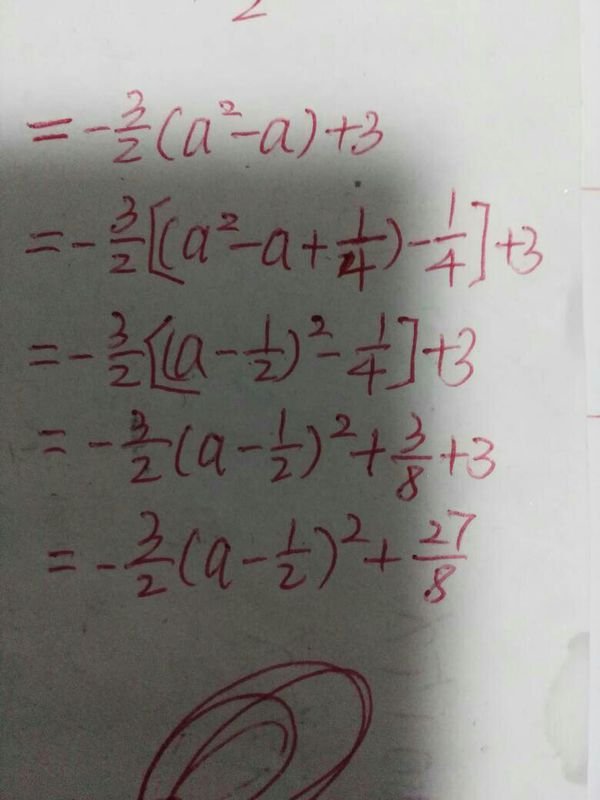 = -3/2(a²-a)+3
= -3/2[(a²-a+1/4)-1/4]+3
= -3/2[(a-1/2)²-1/4]+3
= -3/2(a-1/2)²+3/8+3
= -3/2(a-1/2)²+27/8